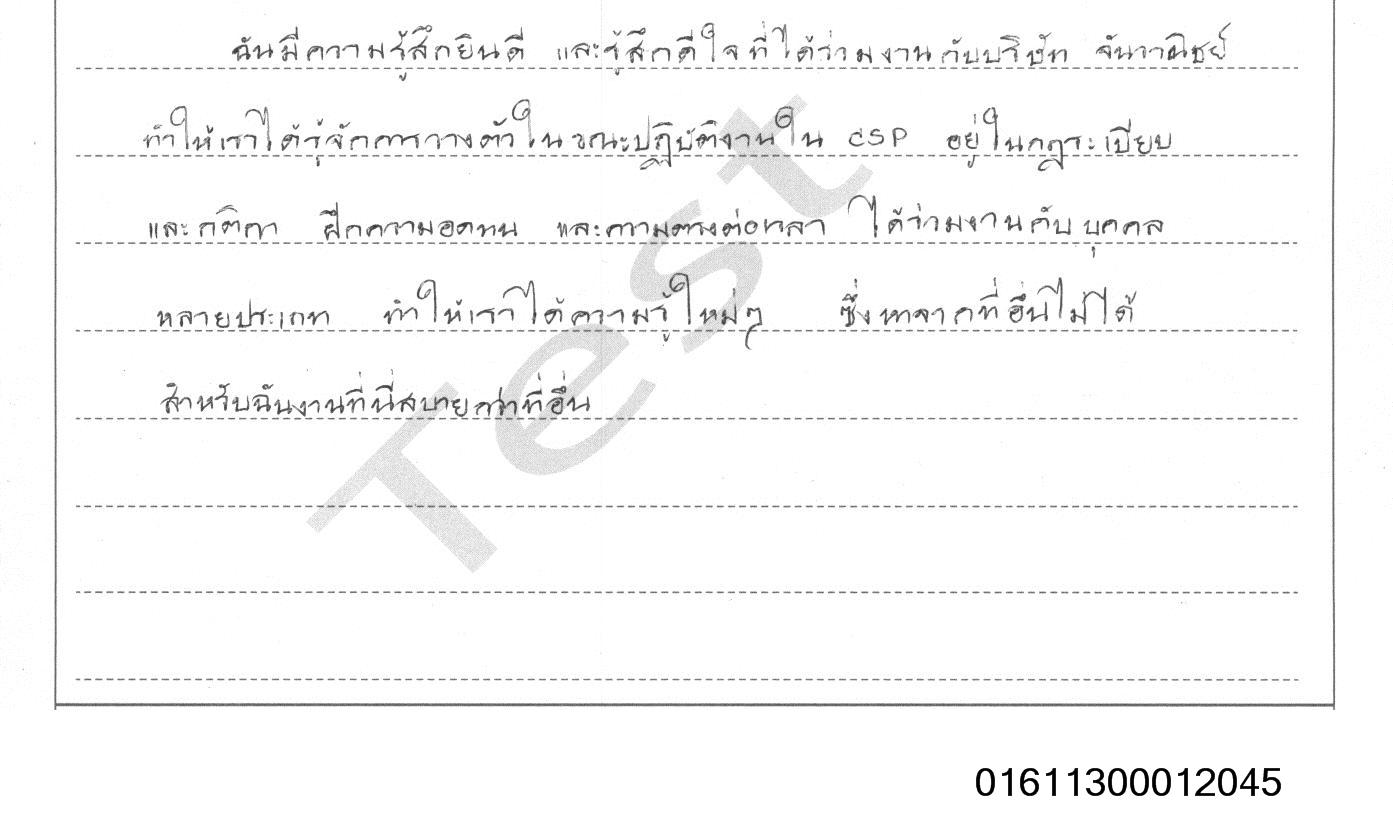 ฉันมีความรู้สึกยินดี และรู้สึกดีใจที่ได้ร่วมงานกับบริษัท จันวาณิชย์
ทำให้เราได้รู้จักการวางตัวในขณะปฏิบัติงานใน CSP อยู่ในกฎระเบียบ
และกติกา ฝึกความอดทน และความตรงต่อเวลา ได้ร่วมงานกับบุคคล
หลายประเภท ทำให้เราได้ความรู้ใหม่ๆ ซึ่งหาจากที่อื่นไม่ได้
สำหรับฉันงานที่นี่สบายกว่าที่อื่น
Test
01611300012045